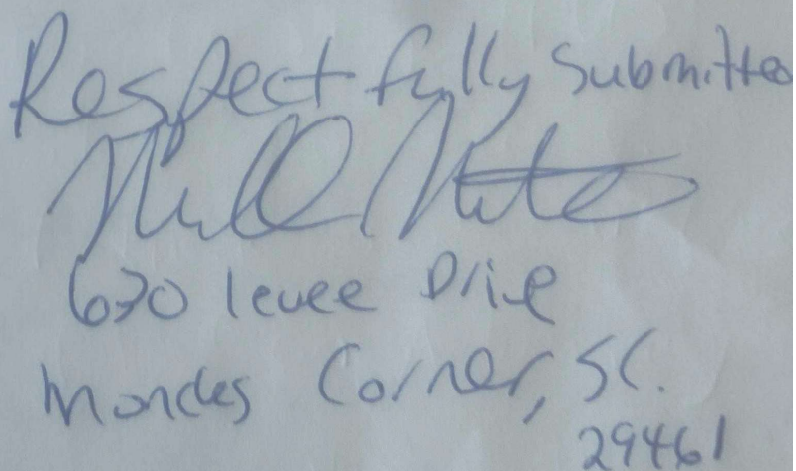 Respectfully Submitted
630 Levee Drive
Moncks Corner, SC.
29461